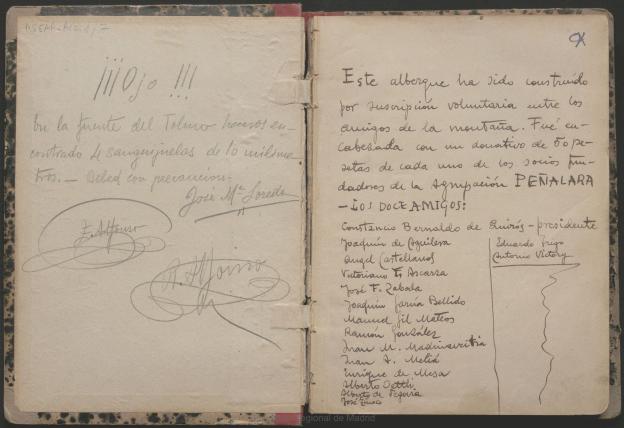 ¡¡¡Ojo!!!
En la fuente del Tolmo hemos en-
contrado 4 sanguijuelas de 10 milíme-
tros. — Bebed con precaución.
José Mª Loredo
E. Alfonso
A. Alfonso
Este albergue ha sido construído
por suscripción voluntaria entre los
amigos de la montaña. Fué en-
cabezada con un donativo de 50 pe-
setas de cada uno de los socios fun-
dadores de la Agrupación PEÑALARA
— LOS DOCE AMIGOS:
Constancio Bernaldo de Quirós — presidente
Joaquín de Aguilera
Angel Castellanos
Victoriano F. Ascarza
José F. Zabala
Joaquín García Bellido
Manuel Gil Mateos
Ramón González
Juan M. Madinaveitia
Juan A. Meliá
Enrique de Mesa
Alberto Oettli
Alberto de Segovia
José Tinoco
Eduardo
Antonio Victory
regional de Madrid